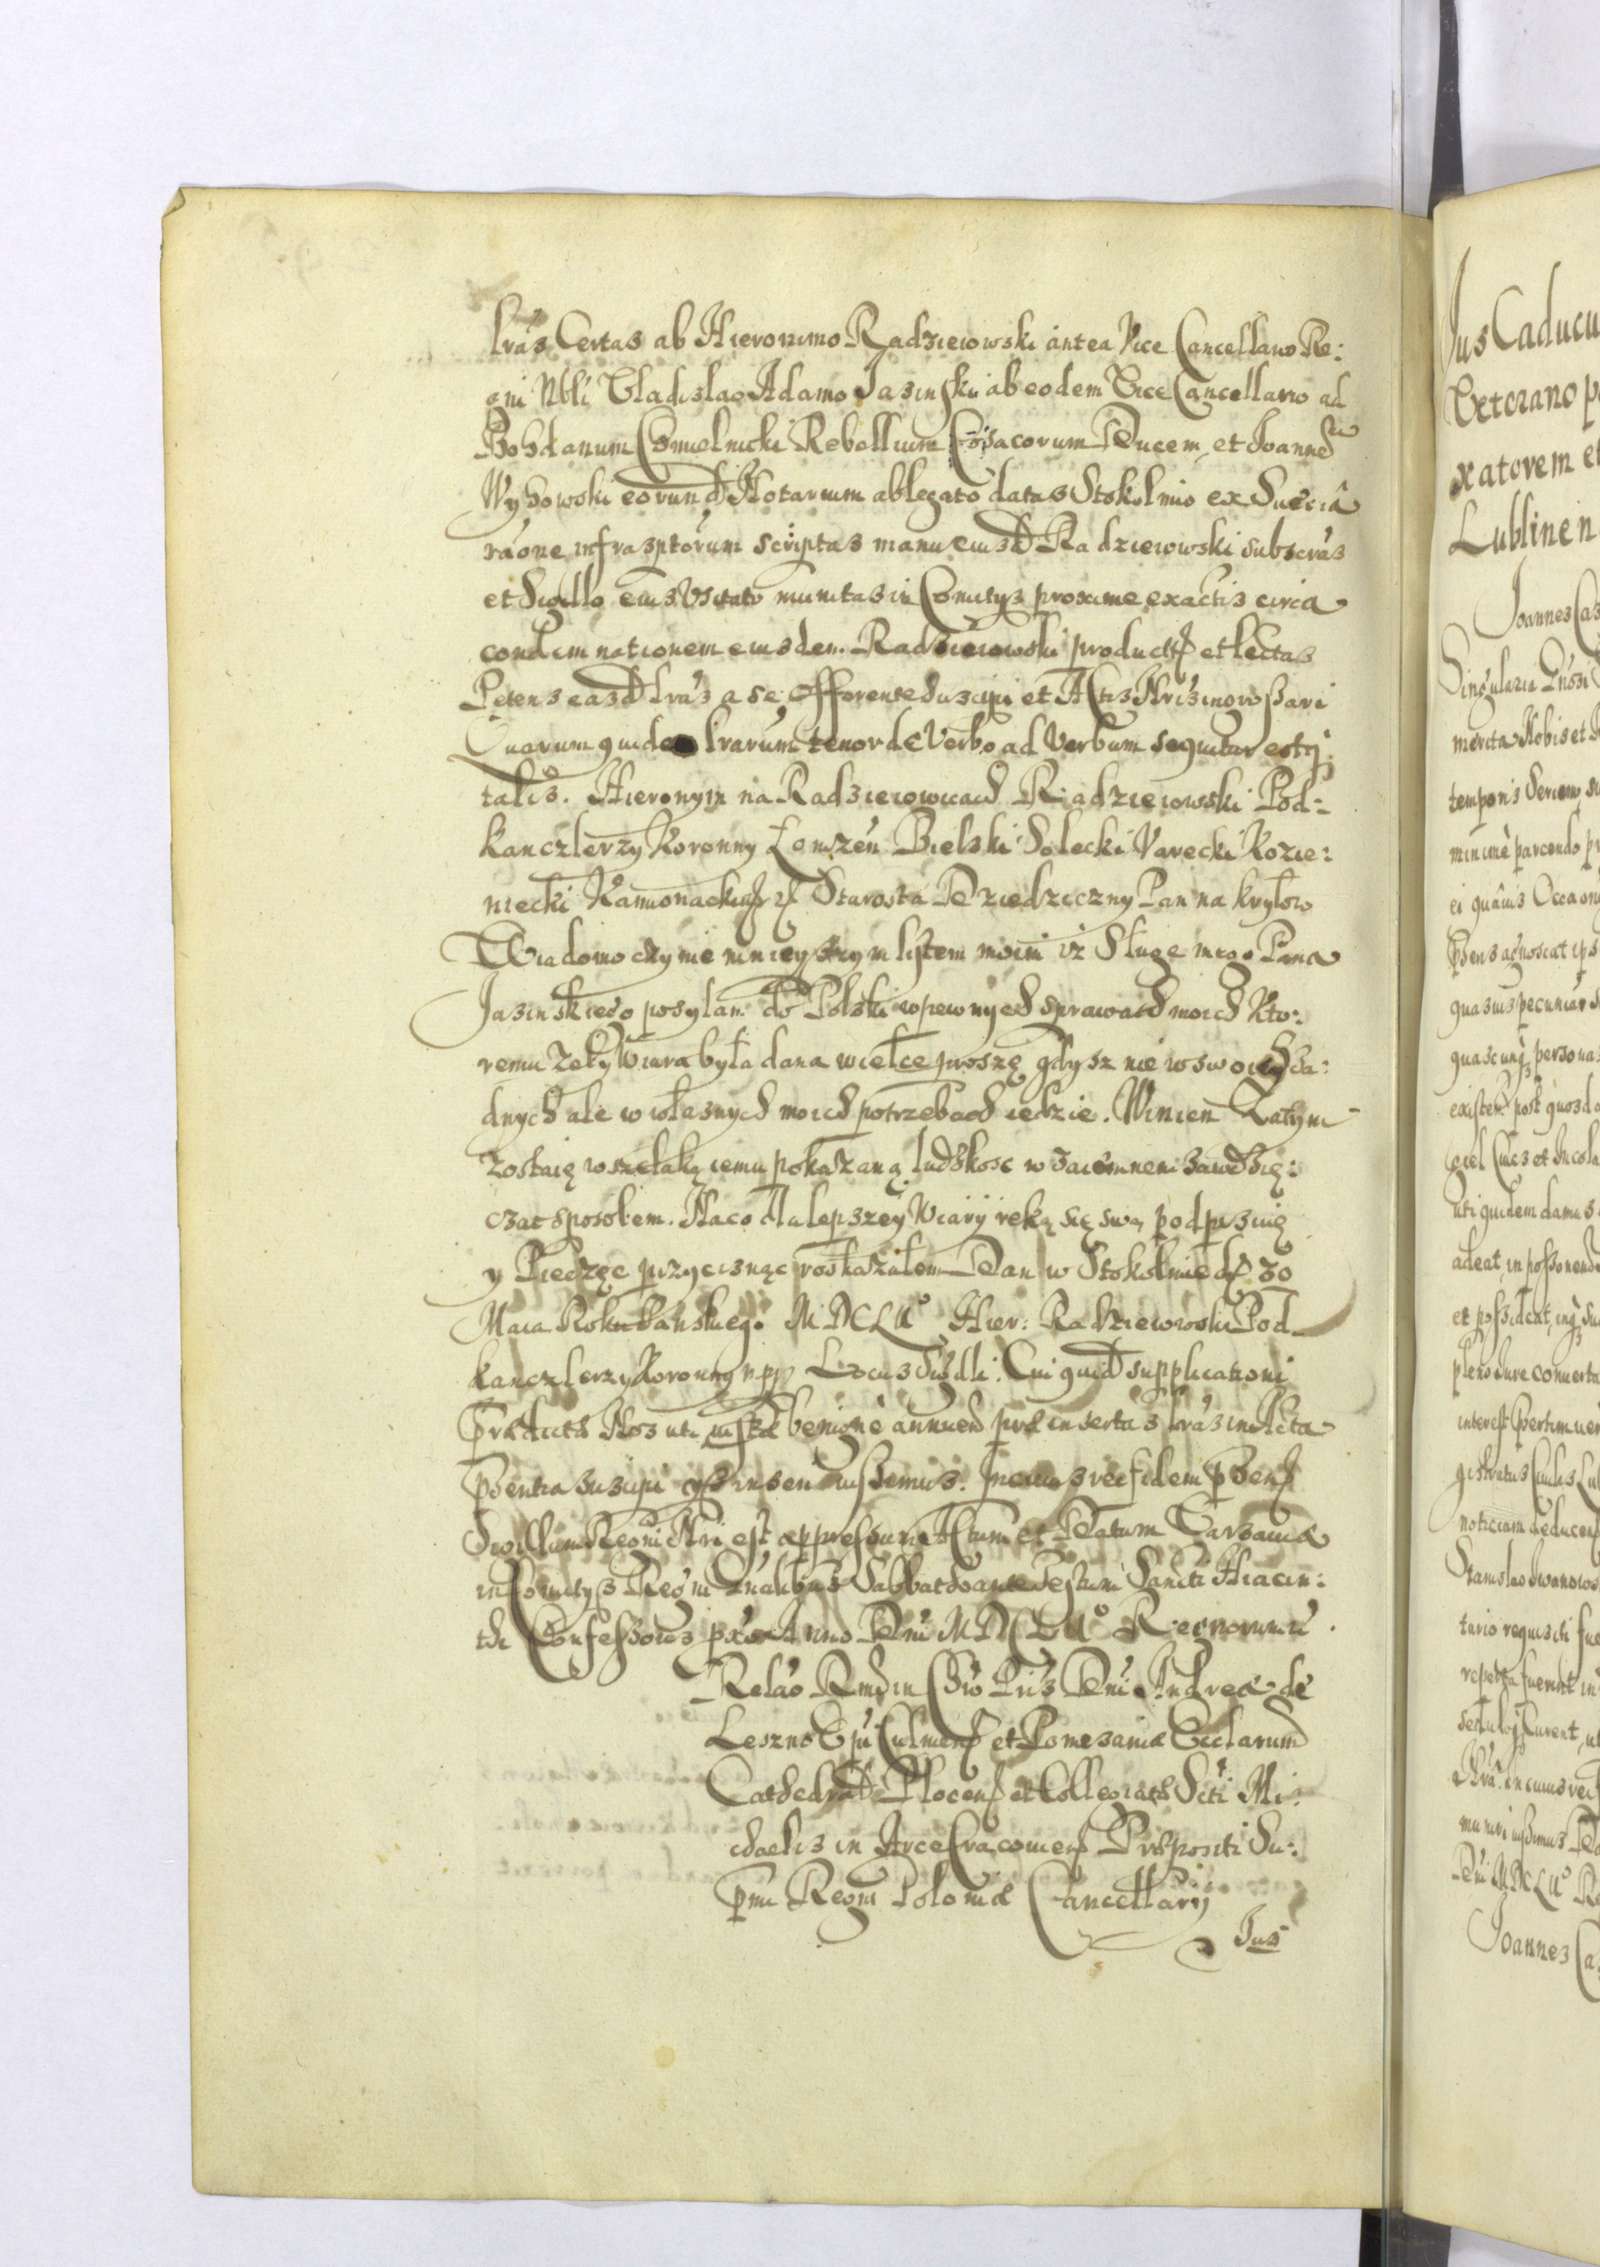 lrãs Certas ab Hieronimo Radzieiowski antea Vice Cancellario Re:
gni Nbli Vladislao Adamo Jasinski ab eodem Vice Cancellario ad
Bohdanum Chmielnicki Rebellium Cosacorum Ducem et Joannem
Wyhowski eorund Notarium ablegato datas Stokolmio ex Sueciâ
raõne infrasptorum scriptas manu eiusd Radzieiowski subscras
et Sigillo eius Usitato munitas in Comitys proxime exactis circa
condemnationem eiusdem Radzieiowski product et lectas
Petens easd lrãs a se offerente Suscipi et Actis Nris ingrossari
Quarum quidem lrarum tenor de Verbo ad Verbum sequitur estq
talis. Hieronym na Radzieiowicach Radzieiowski Pod=
kanclerzy Koronny Łomzen Bielski Solecki Varecki Kozie:
niecki Kamionacki Starosta Dziedziczny Pan na Kryłow
Wiadomo czynie ninieyszym listem moim iż Sługę mego Pana
Jasinskiego posylam do Polski w pewnych sprawach moich Kto:
remu Zeby Wiara była dana wielce proszę gdysz nie w swoich ża:
dnych ale w własnych moich potrzebach iedzie. Winien Zatym
Zostaię wszelaką iemu pokazaną ludzkosc w zaiemnem zawdzię:
czac sposobem. Na co dla lepszey Wiary ręką się swą podpisuię
y Pieczęc przycisnąc roskazałem Dan w Stokolmie d 30
Maia Roku Panskiego MDCLIIº Hier: Radzieiowski Pod
kanclerzy Koronny mpp Locus Sigilli: Cui quid supplicationi
Nos uti iustæ benigne annuen præinsertas lrãs in Acta
pñentia suscipi inseri iussimus. In cuius rei fidem pñens
Sigillum Regni Nri est appressum Actum et Datum Varsaviæ
in Comitys Regni Gñalibus Sabbatho ante Festum Sancti Hiacin:
thi Confessoris pxo Anno Dni MDCLIIº Regnorum
Relaõ Rmi in Chro Pris Dni Andreæ de
Leszno Epi Culmens et Pomesaniæ Ecclarum
Cathedral Plocens et Collegiatæ Scti Mi:
chaelis in Arce Cracoviens Præpositi Su:
pmi Regni Poloniæ Cancellarij
Jus
Jus Caducu
Veterano p
xatorem et
Lublinen
Joannes Cas
Singularia
merita Nobis et
temporis Seriem
minime parcendo pr
ei quâuis Occaon
pñens agnoscat ips
quasuis pecuniar
quascunq personas
existen post quosda
uti quidem damus
adeat, in possionend
et possideat, inq su
pleno Jure conuerta
interest pertinuer
gistratus Ciuilis Lu
notitiam deducend
Stanislao Iwanows
tario requisiti fue
reperta fuerint in
sedulo Curent, ut
Nrã. In cuius rei
muniri iussimus Da
Dni MDCLIIº Re
Joannes Ca